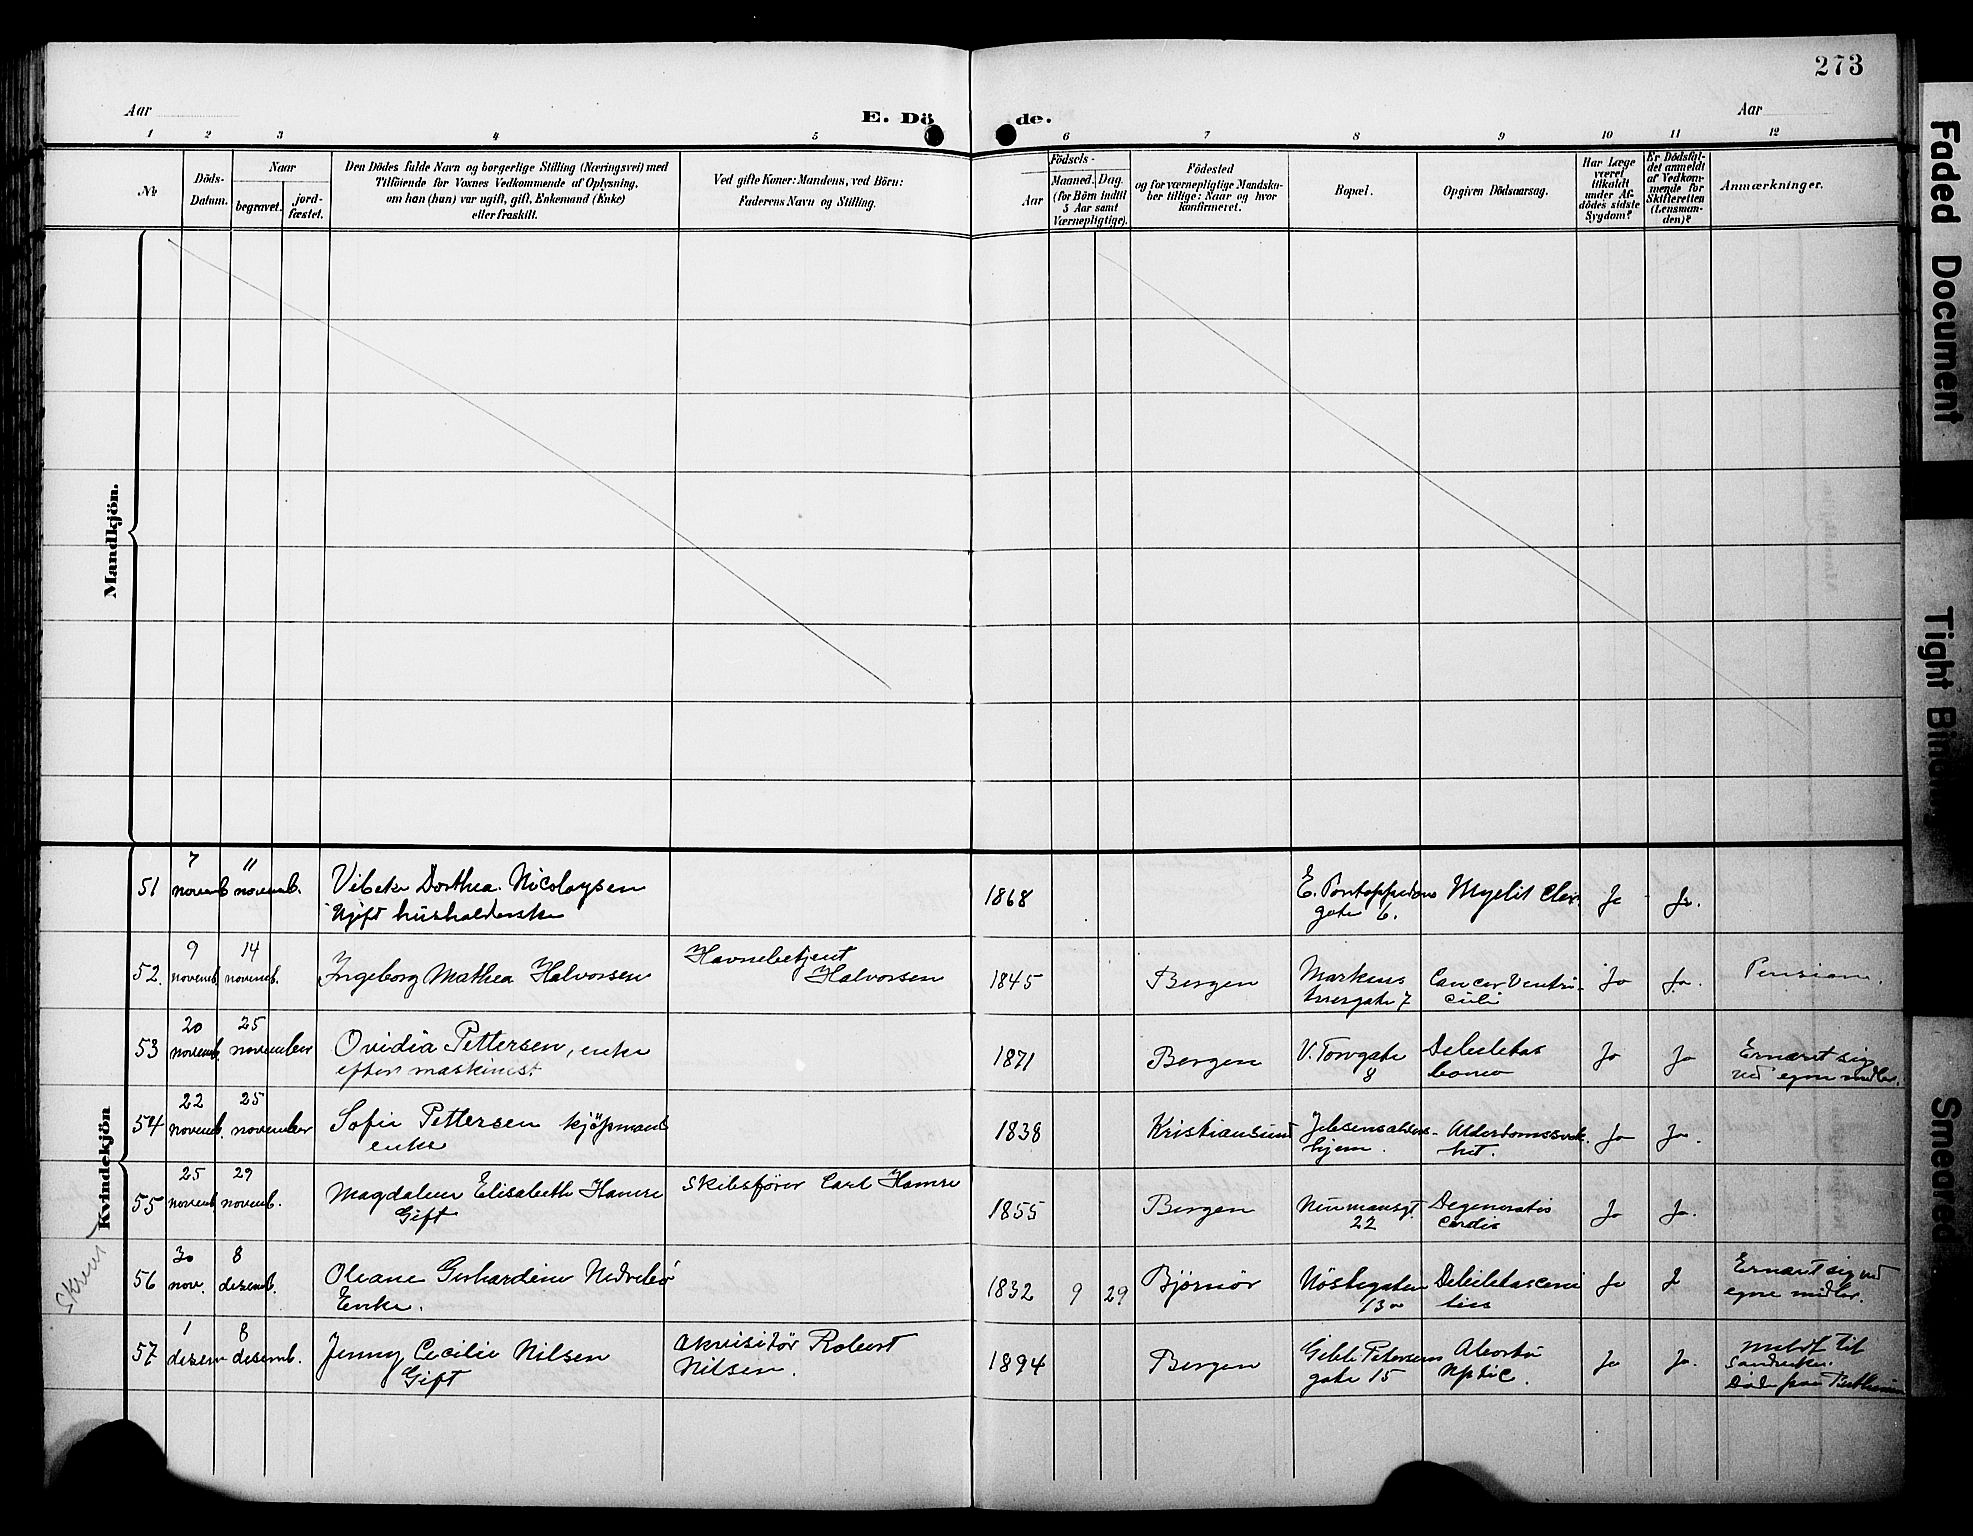 273
Aar
E. Dö de.
Aar
1 2 3 4 5 6 7 8 9 10 11 12
No
Döds-
Datum.
Naar
begravet.
jord-
fæstet.
Den Dödes fulde Navn og borgerlige Stilling (Næringsvei) med
Tilföiende for Voxnes Vedkommende af Oplysning,
om han (hun) var ugift, gift, Enkemand (Enke)
eller fraskilt.
Ved gifte Koner: Mandens, ved Börn:
Faderens Navn og Stilling.
Födsels-
Aar
Maaned. Dag.
(for Börn indtil
5 Aar samt
Værnepligtige).
Födested
og for værnepligtige Mandska-
ber tillige: Naar og hvor
konfirmeret.
Bopæl.
Opgiven Dödsaarsag.
Har Læge
været
tilkaldt
under Af-
dödes sidste
Sygdom?
Er Dödsfal-
det anmeldt
af Vedkom-
mende for
Skifteretten
(Lensman-
den)?
Anmærkninger.
Mandkjön.
Kvindekjön
51
7
novemb
11
novemb.
Vibeke Dorthea Nicolaysen
Ugift husholderske
1868
E. Pontoppidans
gate 6.
Myelit
Ja
Ja.
52.
9
novemb.
14
novemb.
Ingeborg Mathea Halvorsen
Havnebetjent
Halvorsen
1845
Bergen
Markens
gate 7
Cancer Ventri-
culi
Ja
Ja.
Pension.
53
20
novemb.
25
november
Ovidia Pettersen, enke
efter maskinist
1871
Bergen
V. Torvgate
8
Debilitas
Ja
Ja
Ernæret sig
ved egne midler.
54
22
novemb.
25
november
Sofie Pettersen kjöpmands
enke
1838
Kristiansund
Jebsens alders-
hjem.
Alderdomssvak-
het.
Ja
Ja.
55
25
novemb
29
novemb.
Magdalene Elisabeth Hamre
Gift
Skibsfører Carl Hamre
1855
Bergen
Neumansgt.
22
Degeneratio
Cordis
Ja
Ja.
Skrevet
56
30
nov.
8
desemb.
Oleane Gerhardine Nedrebø
Enke.
1832
9
29
Bjørnør
Nöstegaten
13
Debilitas seni
lis
Ja
Ja
Ernæret sig ved
egne midler.
57
1
desem
8
desemb.
Jenny Cecilie Nilsen
Gift
Akvisitør Robert
Nilsen.
1894
Bergen
Gable Petersens
gate 15
Abort
septic.
Ja
Ja.
meldt til
Sandviken.
Død paa
Faded Document
Tight Bind
Smeared